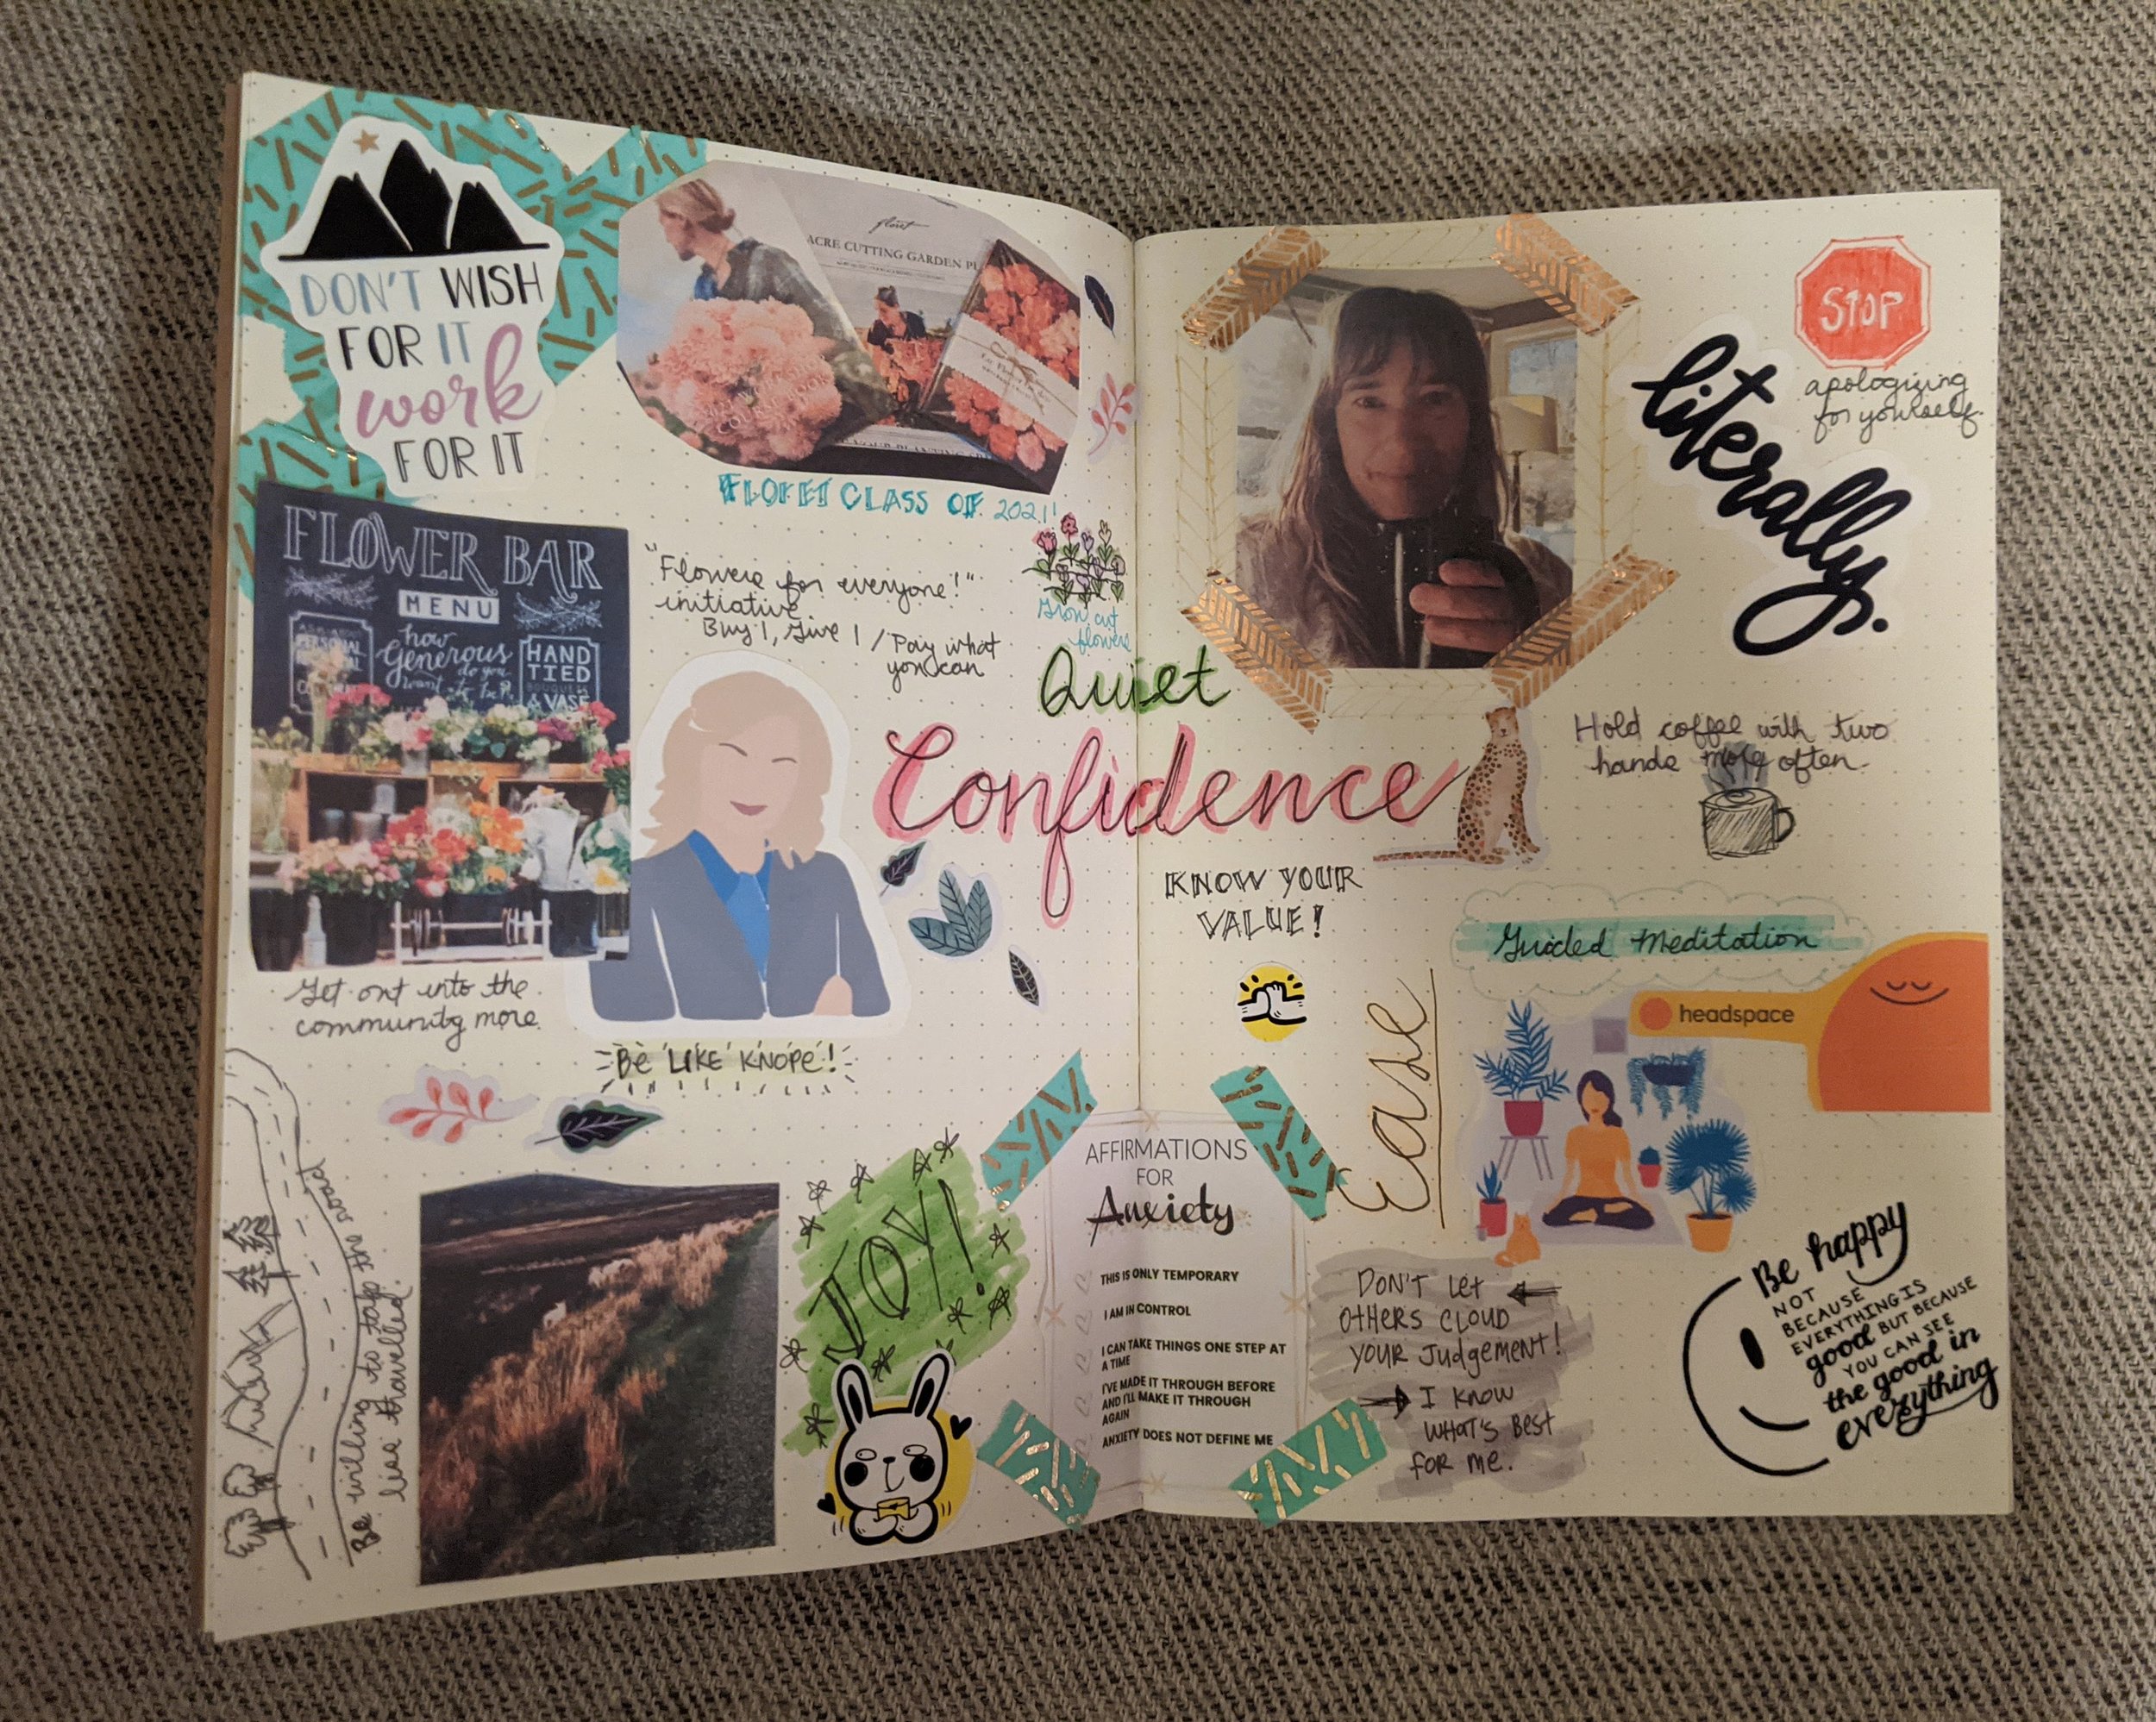 DON'T WISH
FOR IT
work
FOR IT
floret
ACRE CUTTING GARDEN PL
FLORET CLASS OF 2021!
FLOWER BAR
MENU
how
Generous
do you
want to be?
HAND
TIED
BOUQUETS
& VASE
"Flowers for everyone!"
initiative
Buy 1, Give 1 / Pay what
you can
Grow cut
flowers
Get out into the
community more.
Be LIKE KNOPE!
Be willing to take the road
less travelled.
JOY!
Quiet
Confidence
KNOW YOUR
VALUE!
STOP
apologizing
for yourself.
literally.
Hold coffee with two
hands more often.
Guided Meditation
headspace
Ease
AFFIRMATIONS
FOR
Anxiety
THIS IS ONLY TEMPORARY
I AM IN CONTROL
I CAN TAKE THINGS ONE STEP AT
A TIME
I'VE MADE IT THROUGH BEFORE
AND I'LL MAKE IT THROUGH
AGAIN
ANXIETY DOES NOT DEFINE ME
DON'T LET
OTHERS CLOUD
YOUR JUDGEMENT!
I KNOW
WHAT'S BEST
FOR ME.
Be happy
NOT
BECAUSE
EVERYTHING IS
good BUT BECAUSE
YOU CAN SEE
the good in
everything